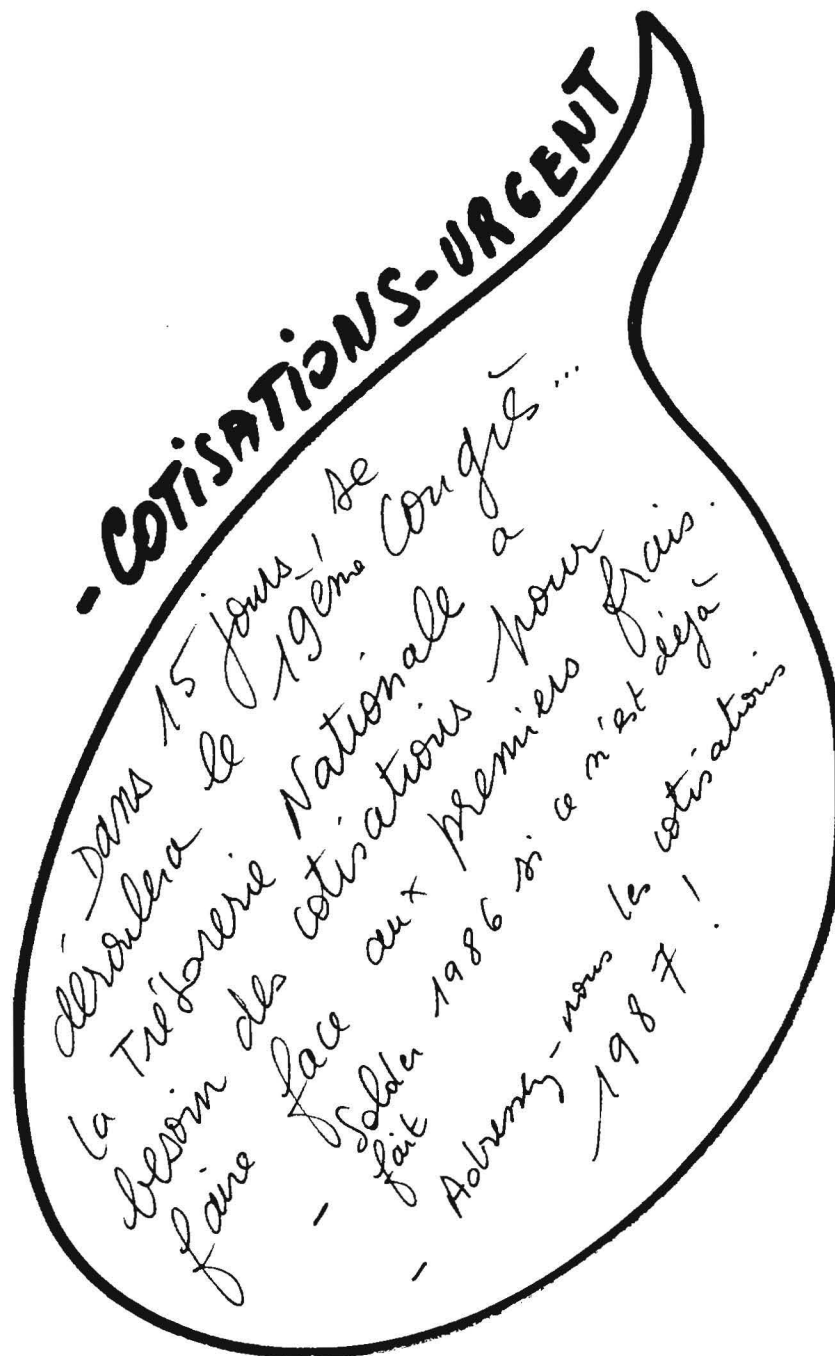 -COTISATIONS-URGENT
Dans 15 jours, se
déroulera le 19ème Congrès...
La Trésorerie Nationale a
besoin des cotisations pour
faire face aux premiers frais.
- Solder 1986 si ce n'est déjà
fait
- Adressez-nous les cotisations
1987!